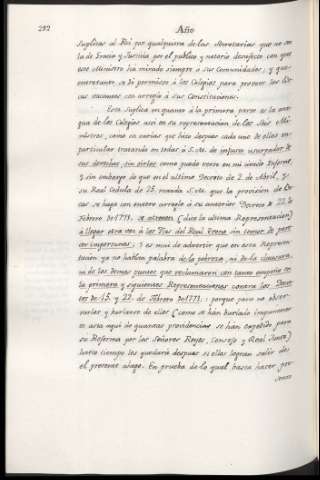 292
Año
suplicas al Rei por qualquiera de las Secretarias que no sea
la de Gracia y Justicia por el publico y notorio desafecto con que
ese Ministro ha mirado siempre á sus Comunidades; y que
entretanto se dé permiso á los Colegios para proveer las Be-
cas vacantes con arreglo á sus Constituciones.
Esta Suplica en quanto á la primera parte es la mis-
ma de los Colegios asi en su representacion de los Seis Mi-
nistros, como en varias que hizo despues cada uno de ellos en
particular tratando en todas á S. M. de injusto usurpador de
sus derechos, sin oirles como puede verse en mi citado Informe,
y sin embargo de que en el ultimo Decreto de 2 de Abril, y
su Real Cedula de 25, manda S. M. que la provision de Be-
cas se haga con entero arreglo á su anterior Decreto de 22 de
Febrero de 1773, se atreven (dice la ultima Representacion)
á llegar otra vez á los Pies del Real Trono sin temor de pare-
cer importunos; y es mui de advertir que en esta Represen-
tacion ya no hablan palabra de la pobreza, ni de la clausura,
ni de los demas puntos que reclamaron con tanto empeño en
la primera y siguientes Representaciones contra los Decre-
tos de 15 y 22 de Febrero de 1771: porque para no obser-
varlos y burlarse de ellos (como se han burlado impunemen-
te asta aqui de quantas providencias se han expedido para
su Reforma por los Señores Reyes, Consejo y Real Junta)
harto tiempo les quedará despues si ellos logran salir de
el presente ahogo. En prueba de lo qual basta hacer pre-
sente